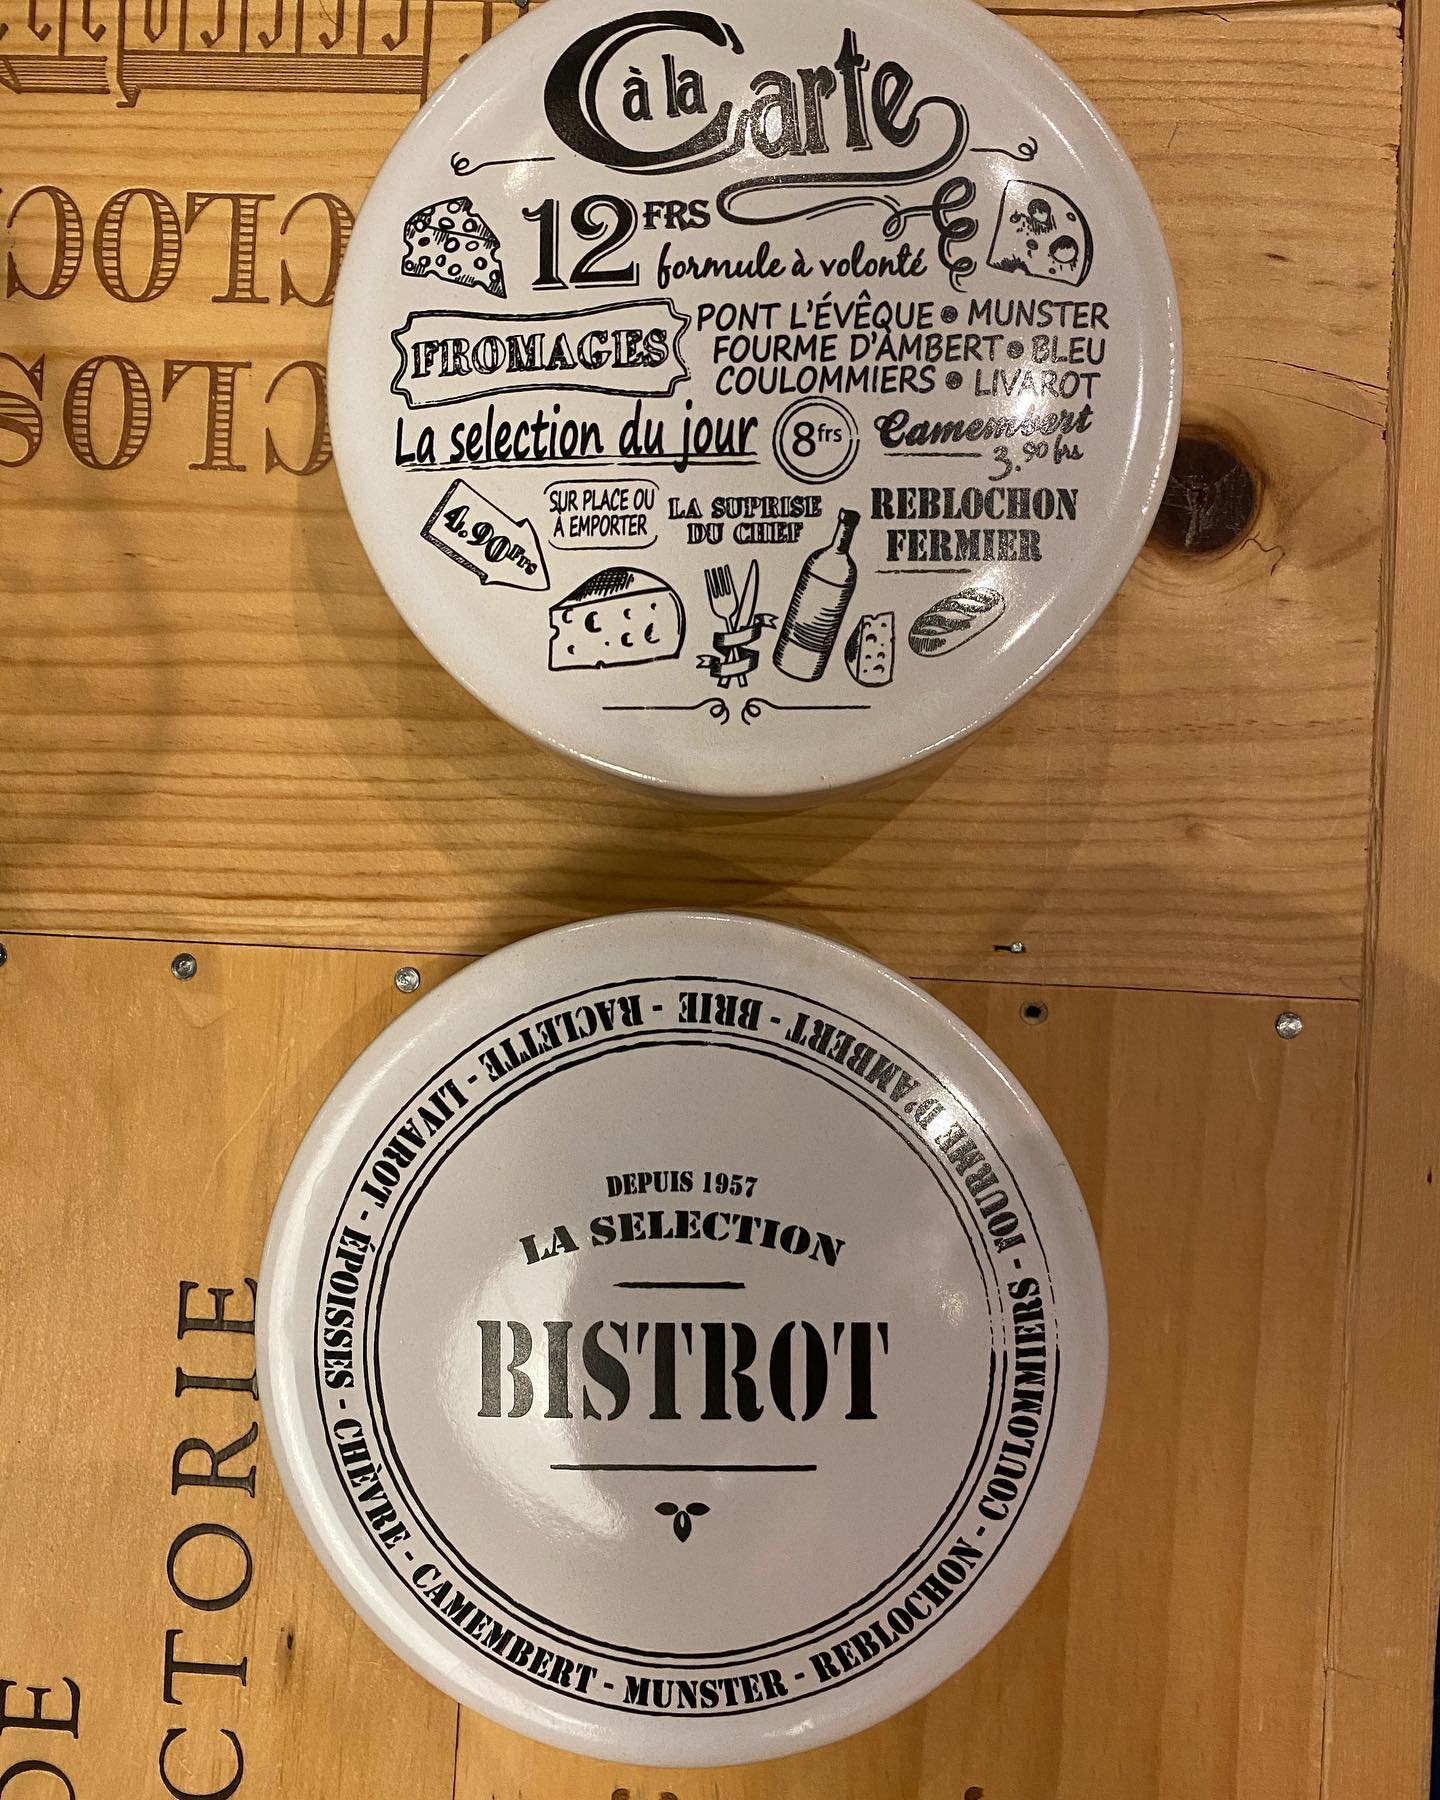 à la Carte
12 FRS
formule à volonté
FROMAGES
PONT L'ÉVÊQUE • MUNSTER
FOURME D'AMBERT • BLEU
COULOMMIERS • LIVAROT
La selection du jour
8 frs
Camembert
3.90 frs
4.90 Frs
SUR PLACE OU
À EMPORTER
LA SUPRISE
DU CHEF
REBLOCHON
FERMIER
DEPUIS 1957
LA SELECTION
BISTROT
CHÈVRE - CAMEMBERT - MUNSTER - REBLOCHON - COULOMMIERS - FOURME D'AMBERT - BRIE - RACLETTE - LIVAROT - ÉPOISSES -
CLOS